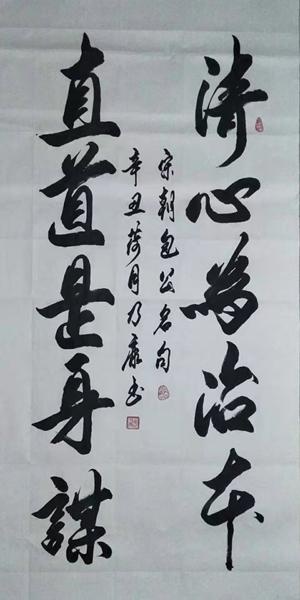 清心为治本
直道是身謀
宋朝包公名句
辛丑荷月乃康书